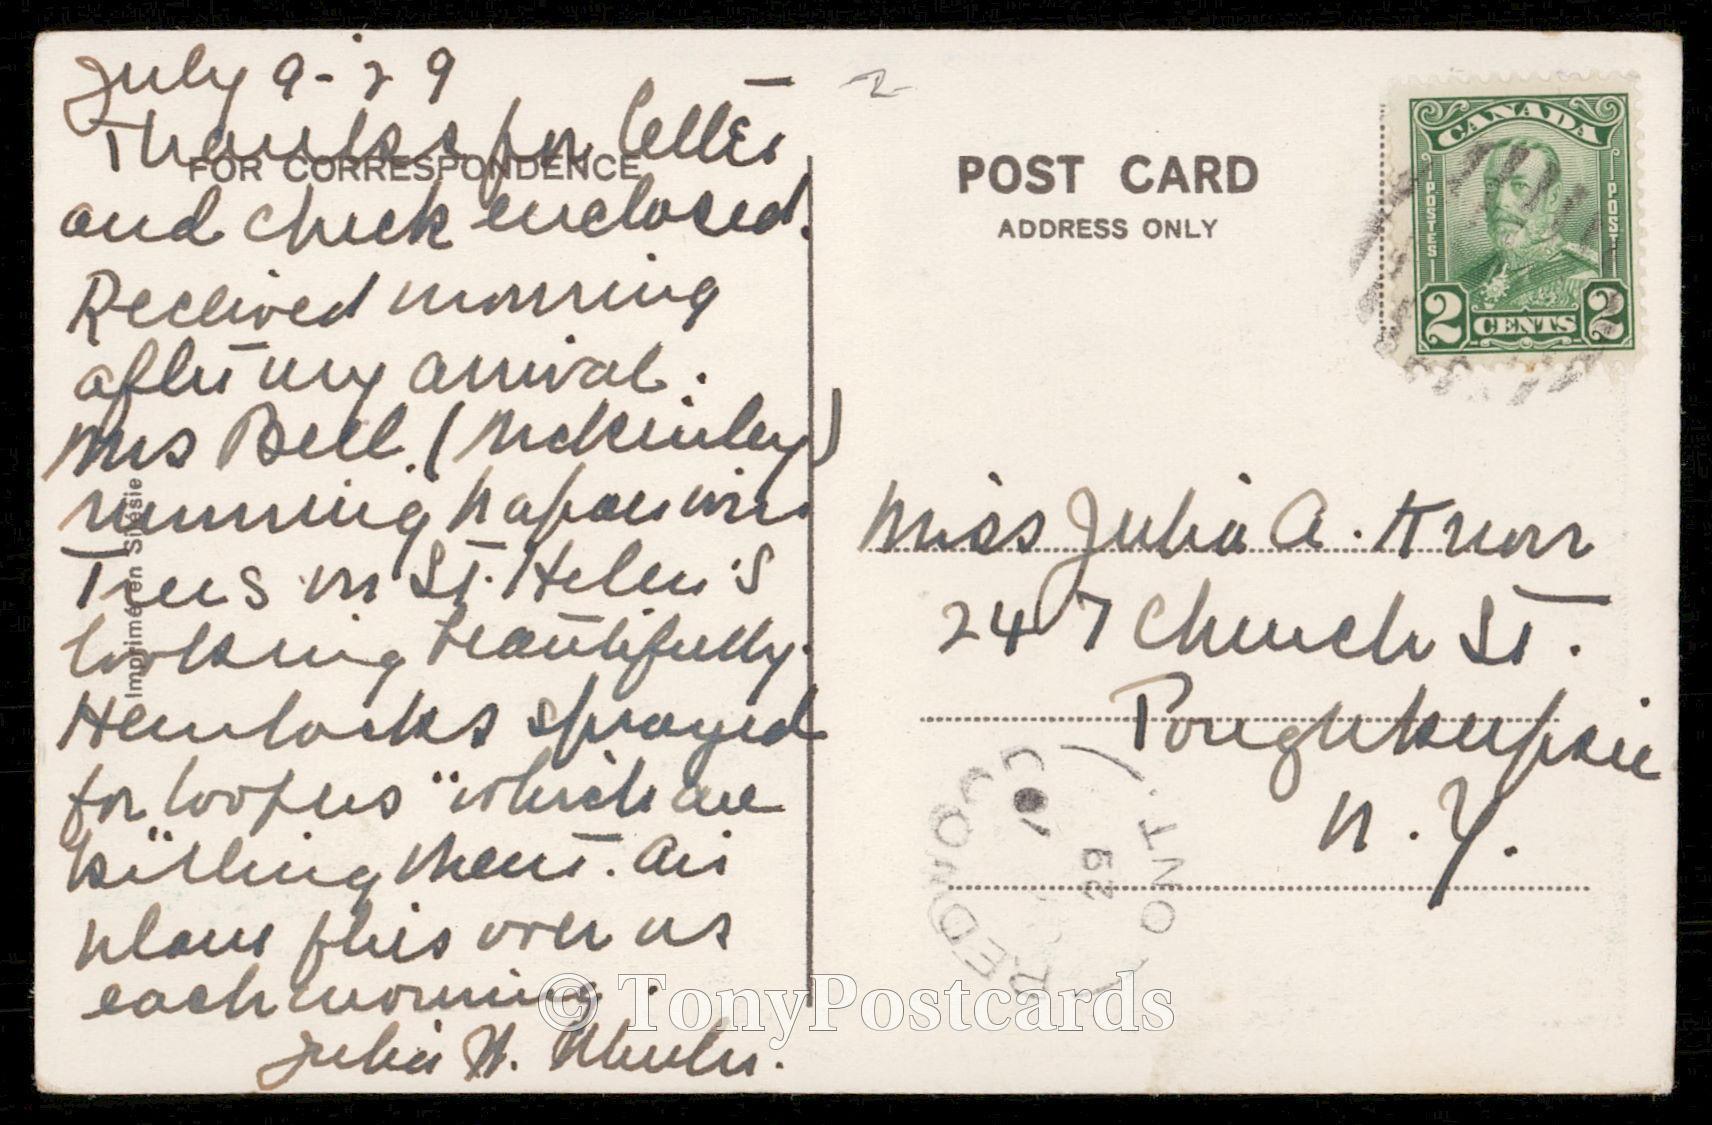 July 9-29
Thanks for letter
FOR CORRESPONDENCE
and check enclosed.
Received morning
after my arrival.
Mrs Bell. (McKinley)
running Napanwin.
Trees on St. Helen's
looking beautifully.
Hemlocks sprayed
for loopers "which are
killing them. Air
plane flies over us
each morning.
Julia W. Wheeler.
Imprimé en Silésie
2
POST CARD
ADDRESS ONLY
CANADA
POSTES
POSTES
2 CENTS 2
Miss Julia A. Knorr
247 Church St.
Poughkeepsie
N.Y.
REDWOOD
29
ONT.
© TonyPostcards